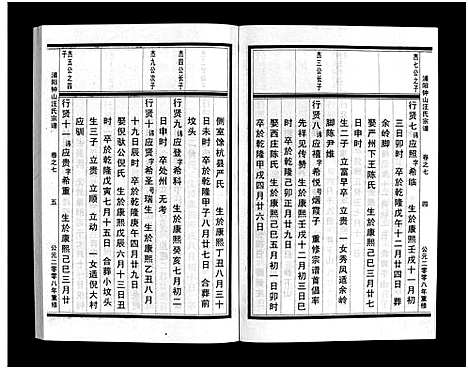 浦阳钟山汪氏宗谱 卷之七 四 公元二零零八年重修
杰七公之子
行贤七 讳应照 字希临 生於康熙壬戌十一月初
三日卯时 卒於乾隆戊午十二月廿四日卯时 葬
余岭脚
娶严州下王陈氏 生於康熙
脚陈尹维
生二子 立富早卒 立昌 一女秀凤适余岭
杰八公长子
行贤八 讳应禧 字希悦 号烟霞子 重修宗谱首倡率
先祥见传赞 生於康熙壬戌十二月初三日戌
时 卒於乾隆己卯正月廿九日
娶西庄陈氏 生於康熙己巳九月十九日
卒於乾隆甲戌四月廿六日
侧室馀杭县严氏 生於康熙丁丑八月三十
日未时 卒於乾隆甲子八月廿七日 合葬前
坟头
杰四公长子
行贤九 讳应登 字希科 生於康熙癸亥七月初二
日申时 卒处州 无考
杰九公次子
行贤十 讳应贤 字希圣 号瑞生 生於康熙乙丑八月
十九日辰时 卒於乾隆庚申四月廿九日
娶倪驮公倪氏 生於康熙戊辰六月十三日丑
时 卒於乾隆戊寅七月十五日 合葬小坟头
生三子 立贵 立顺 立动 一女适倪大村
应驯
杰五公之四子
行贤十一 讳应贵 字希重 生於康熙己巳三月廿
浦阳钟山汪氏宗谱 卷之七 五 公元二零零八年重修